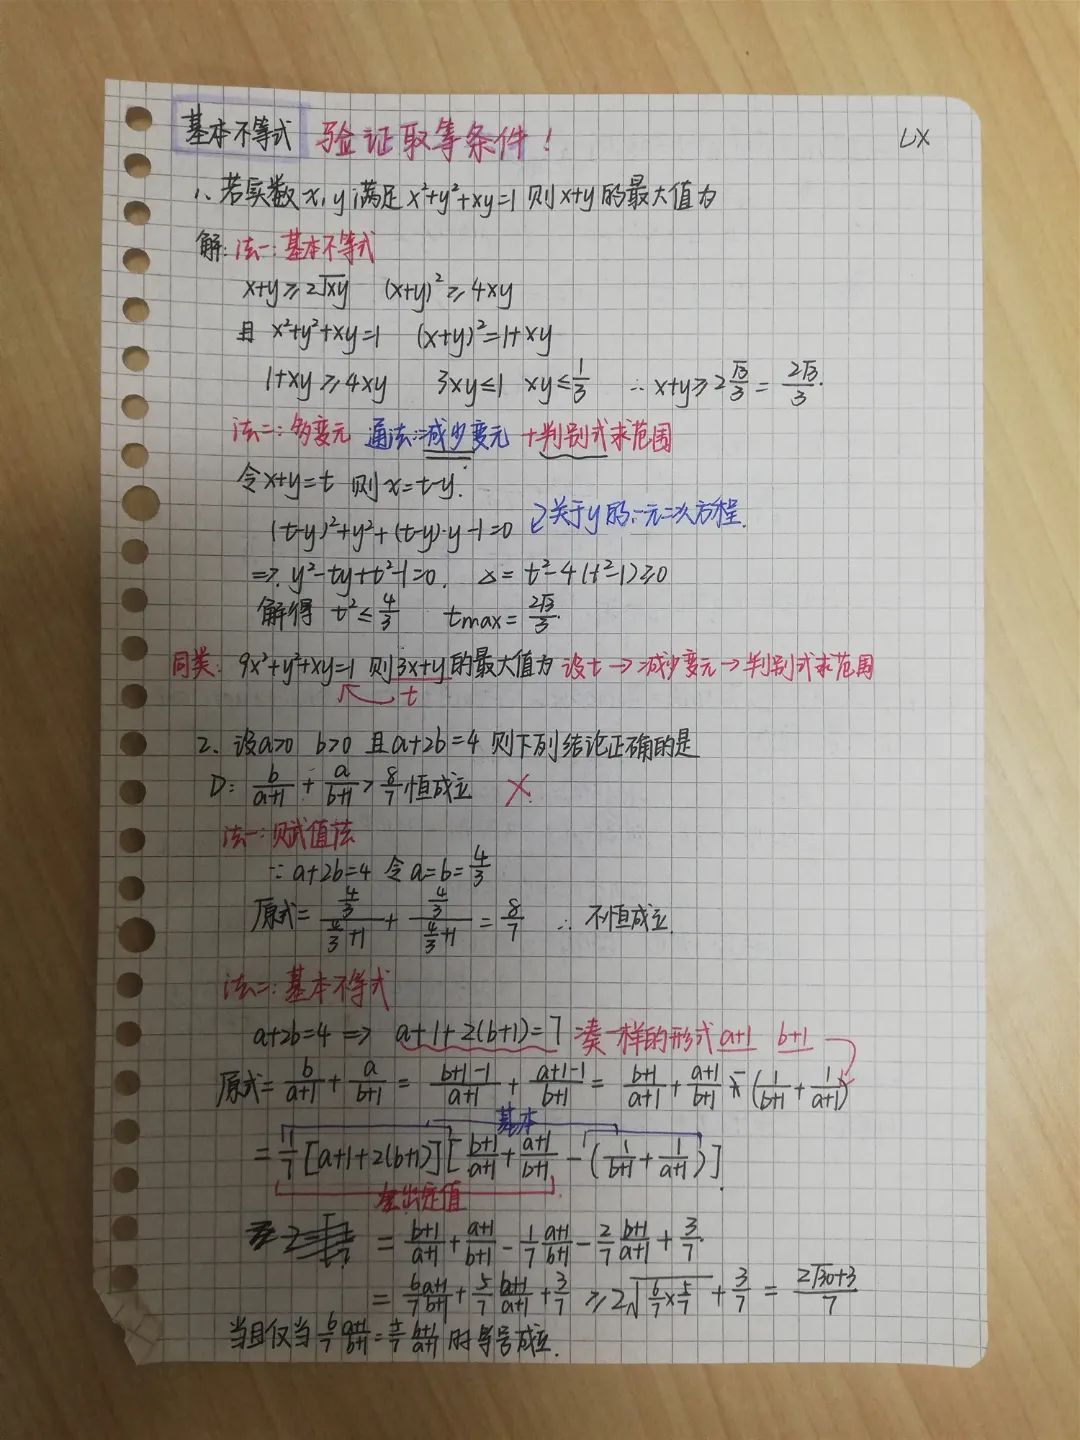 基本不等式 验证取等条件! LX
1、若实数x,y满足x²+y²+xy=1则x+y的最大值为
解:法一:基本不等式
x+y≥2√xy (x+y)²≥4xy
且 x²+y²+xy=1 (x+y)²=1+xy
1+xy≥4xy 3xy≤1 xy≤1/3 ∴x+y≥2√3/3=2√3/3.
法二:多变元 通法:减少变元+判别式求范围
令x+y=t 则x=t-y.
(t-y)²+y²+(t-y)·y-1=0 关于y的一元二次方程.
⇒ y²-ty+t²-1=0. Δ=t²-4(t²-1)≥0
解得 t²≤4/3 tmax=2√3/3.
同类:9x²+y²+xy=1则3x+y的最大值为 设t→减少变元→判别式求范围
t
2、设a>0 b>0 且a+2b=4则下列结论正确的是
D: b/(a+1)+a/(b+1)>8/7恒成立 ×
法一:赋值法
∵a+2b=4 令a=b=4/3
原式=(4/3)/(4/3+1)+(4/3)/(4/3+1)=8/7 ∴不恒成立.
法二:基本不等式
a+2b=4 ⇒ a+1+2(b+1)=7 凑一样的形式a+1 b+1
原式=b/(a+1)+a/(b+1)=(b+1-1)/(a+1)+(a+1-1)/(b+1)=(b+1)/(a+1)+(a+1)/(b+1)-(1/(b+1)+1/(a+1))
基本
=1/7[a+1+2(b+1)][(b+1)/(a+1)+(a+1)/(b+1)-(1/(b+1)+1/(a+1))]
出定值
=(b+1)/(a+1)+(a+1)/(b+1)-1/7(a+1)/(b+1)-2/7(b+1)/(a+1)+3/7.
=6/7(a+1)/(b+1)+5/7(b+1)/(a+1)+3/7≥2√(6/7×5/7)+3/7=(2√30+3)/7
当且仅当6/7(a+1)/(b+1)=5/7(b+1)/(a+1)时等号成立.